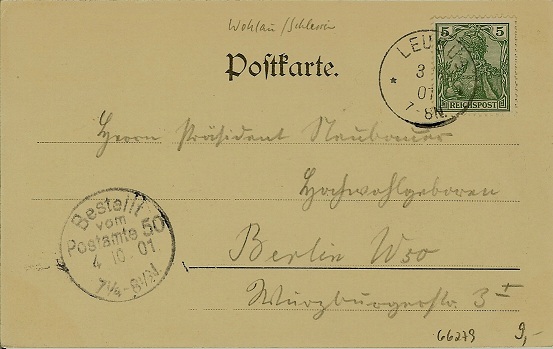 Wohlau/Schlesien
Postkarte.
LEUBUS
3
01
7-8N.
5 5
REICHSPOST
Herrn Präsident Neubauer
Hochwohlgeboren
Berlin W50
Würzburgerstr 3 I
Bestellt
vom
Postamte 50
4 10 01
7¼-8½N.
66279
9,-